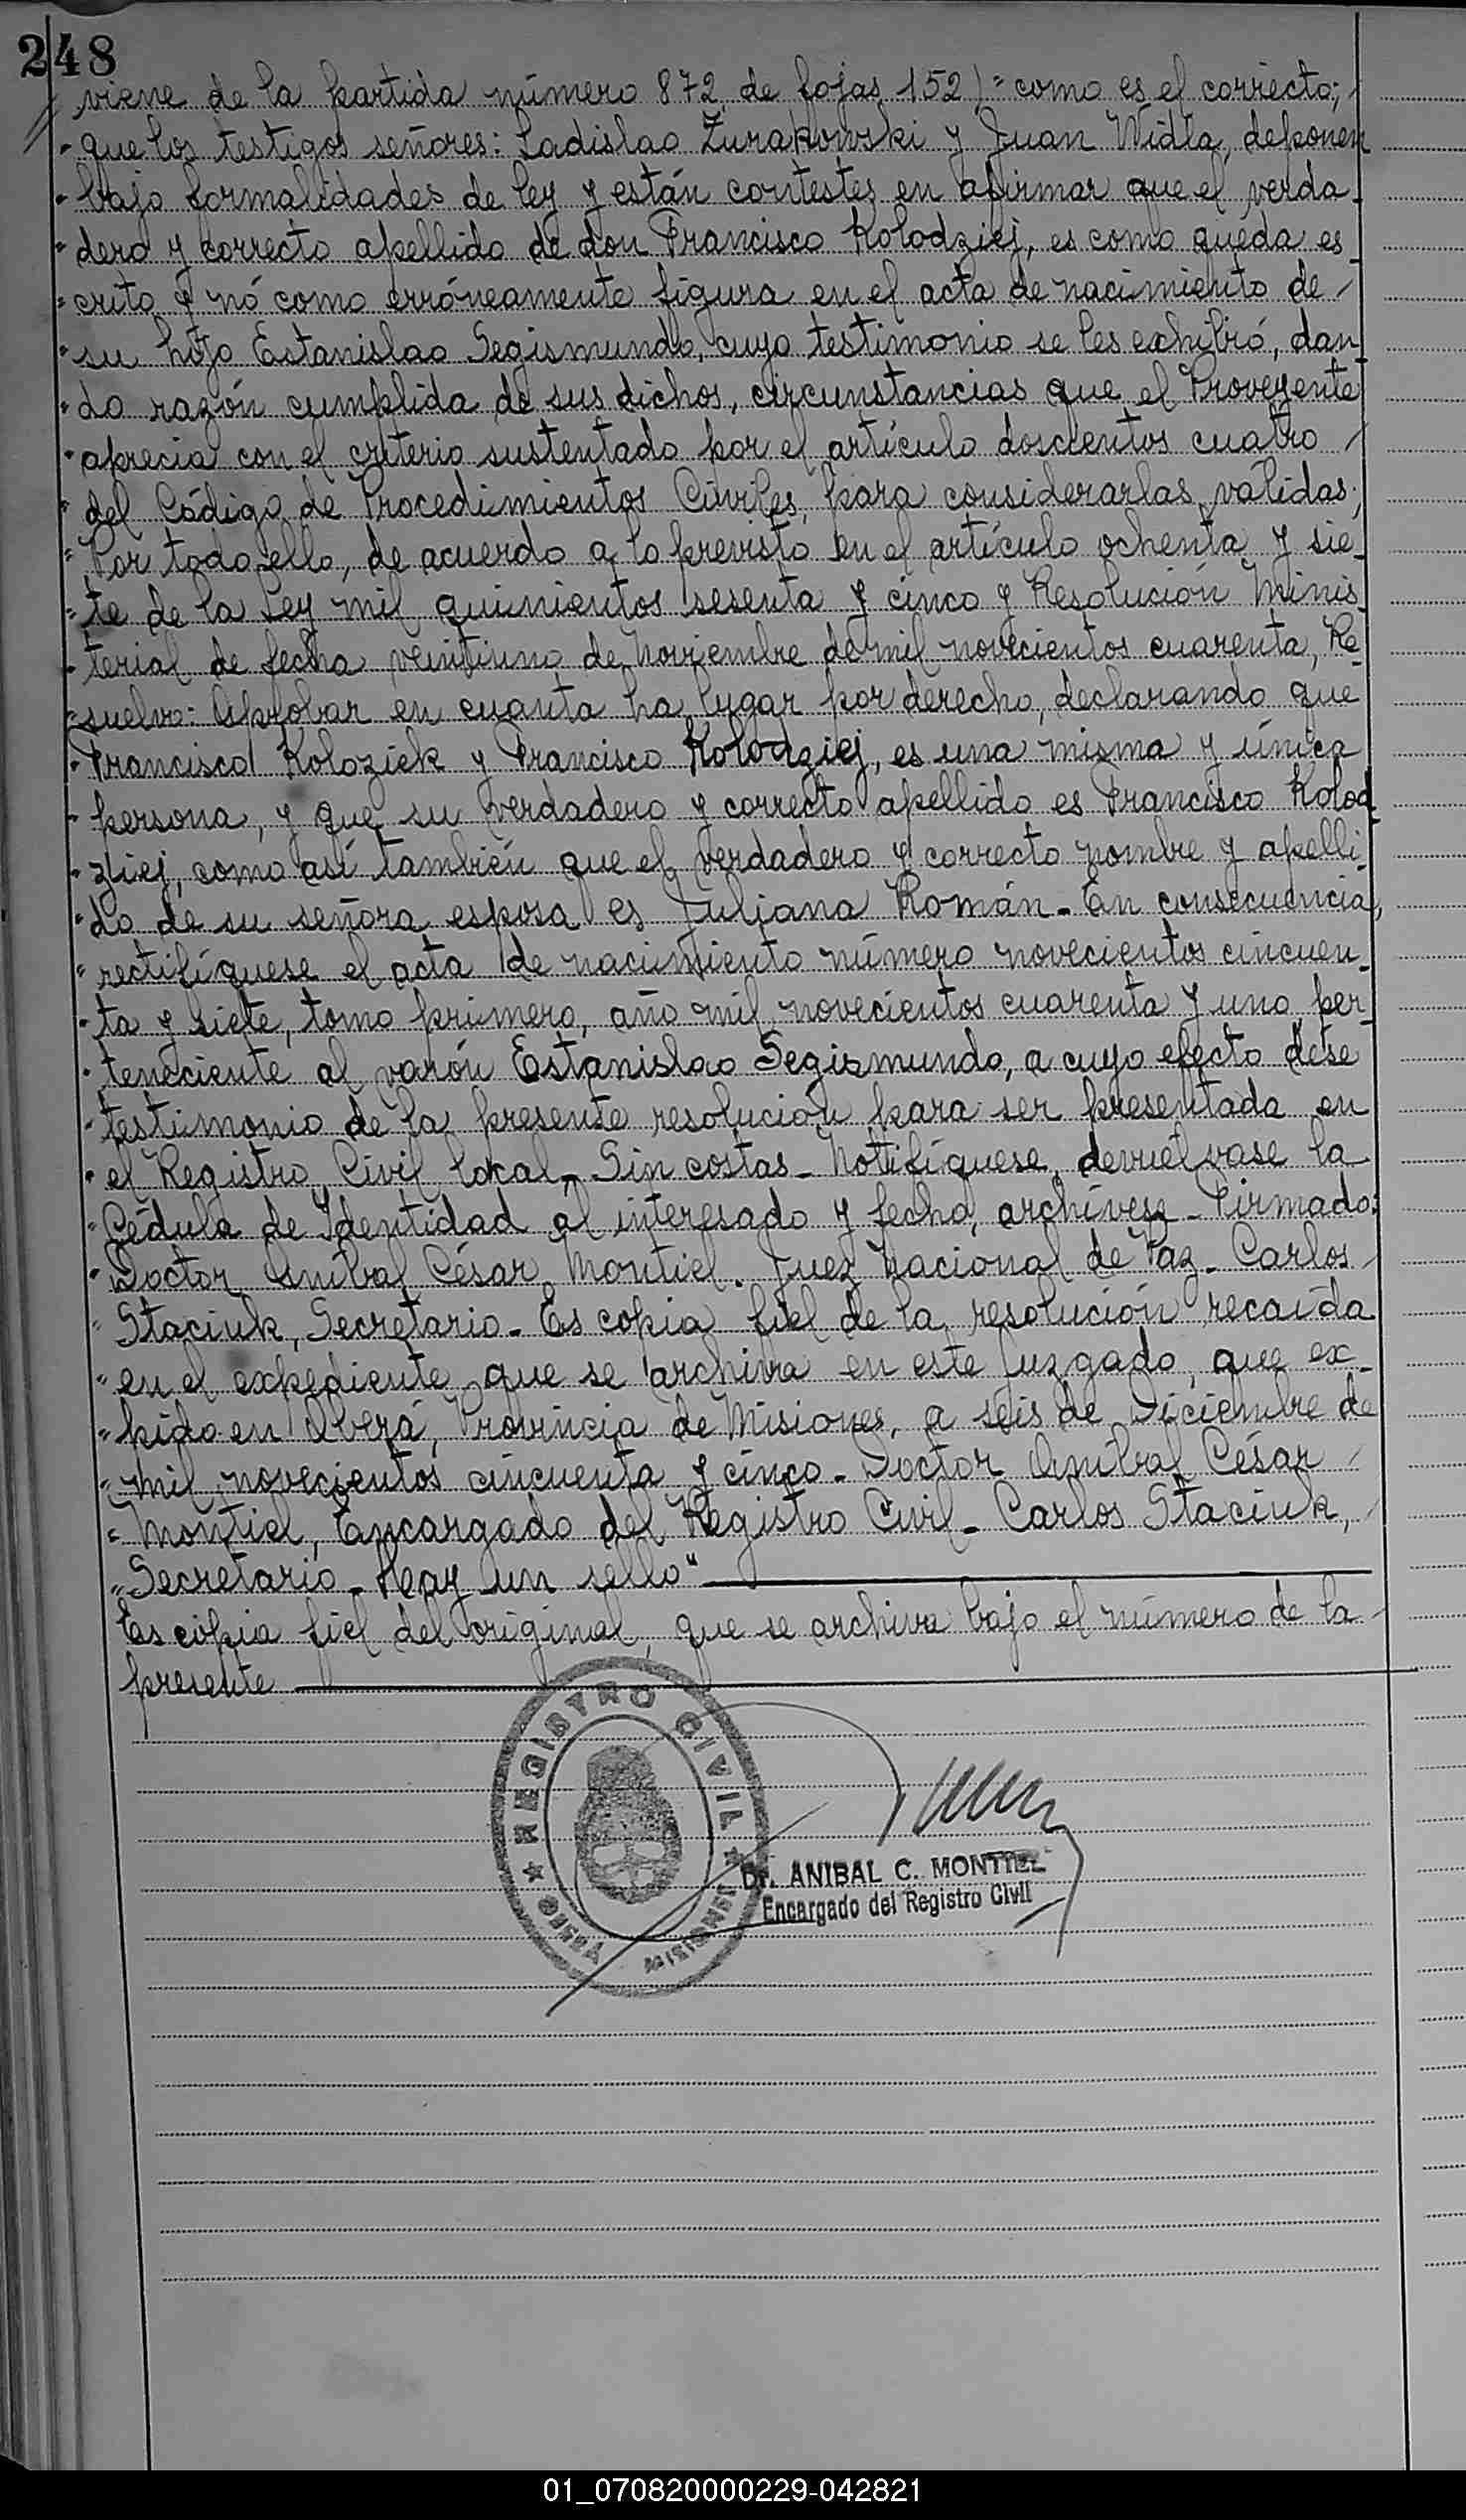 248
// viene de la partida número 872, de fojas 152) = como es el correcto; /
" que los testigos señores: Ladislao Zurakowski y Juan Widla, deponen
" bajo formalidades de ley y están contestes en afirmar que el verda_
" dero y correcto apellido de don Francisco Kolodziej, es como queda es_
" crito y nó como erróneamente figura en el acta de nacimiento de /
" su hijo Estanislao Segismundo, cuyo testimonio se les exhibió, dan_
" do razón cumplida de sus dichos, circunstancias que el Proveyente
" aprecia con el criterio sustentado por el artículo doscientos cuatro /
" del Código de Procedimientos Civiles, para considerarlas válidas;
" Por todo ello, de acuerdo a lo previsto en el artículo ochenta y sie_
" te de la Ley mil quinientos sesenta y cinco y Resolución Minis_
" terial de fecha veintiuno de Noviembre de mil novecientos cuarenta, Re_
" suelvo: Aprobar en cuanta ha lugar por derecho, declarando que
" Francisco Koloziek y Francisco Kolodziej, es una misma y única
" persona, y que su verdadero y correcto apellido es Francisco Kolod_
" ziej, como así también que el verdadero y correcto nombre y apelli_
" do de su señora esposa es Juliana Román_ En consecuencia,
" rectifíquese el acta de nacimiento número novecientos cincuen_
" ta y siete, tomo primero, año mil novecientos cuarenta y uno per_
" teneciente al varón Estanislao Segismundo, a cuyo efecto dese
" testimonio de la presente resolución para ser presentada en
" el Registro Civil local_ Sin costas_ Notifíquese, devuélvase la
" Cédula de Identidad al interesado y fecho, archívese_ Firmado:
" Doctor Aníbal César Montiel. Juez Nacional de Paz_ Carlos /
" Staciuk, Secretario_ Es copia fiel de la resolución recaída
" en el expediente que se archiva en este Juzgado, que ex_
" pido en Oberá, Provincia de Misiones, a seis de Diciembre de
" mil novecientos cincuenta y cinco_ Doctor Aníbal César /
" Montiel, Encargado del Registro Civil_ Carlos Staciuk, /
" Secretario_ Hay un sello"
Es copia fiel del original, que se archiva bajo el número de la /
presente
REGISTRO CIVIL
OBERÁ MISIONES
Dr. ANIBAL C. MONTIEL
Encargado del Registro Civil
01_070820000229-042821